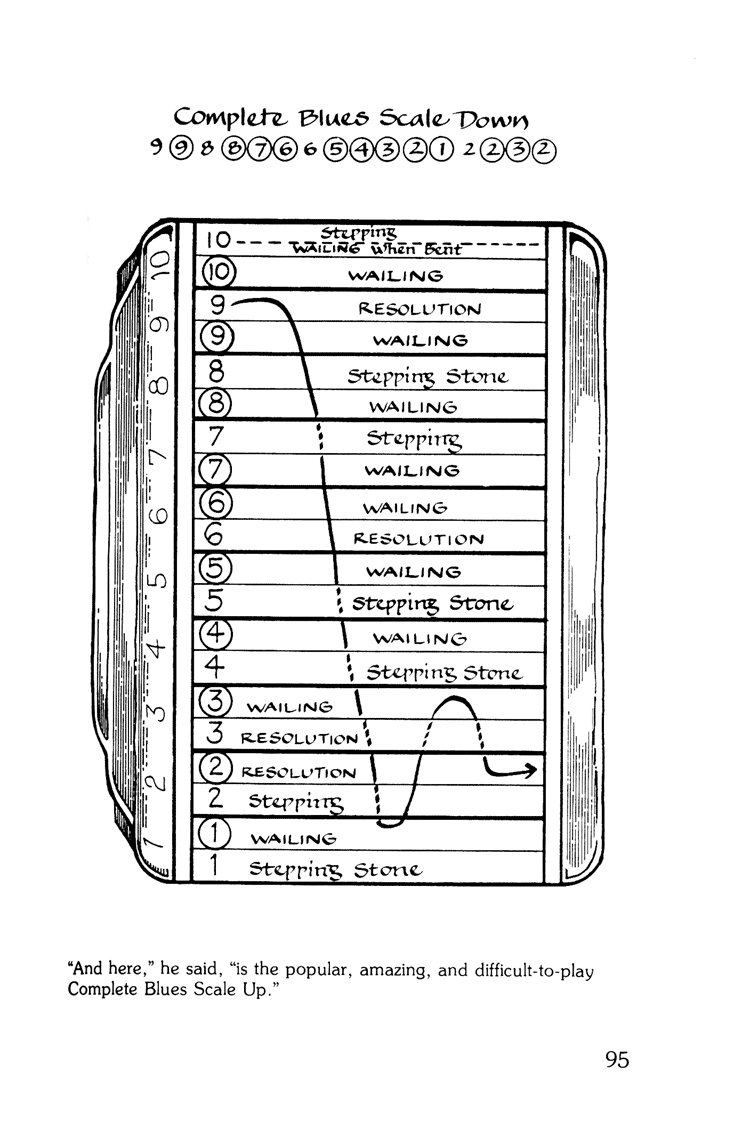 Complete Blues Scale Down
9 ⑨ 8 ⑧⑦⑥ 6 ⑤④③②① 2 ②③②
10 Stepping
WAILING When Bent
⑩ WAILING
9 RESOLUTION
⑨ WAILING
8 Stepping Stone
⑧ WAILING
7 Stepping
⑦ WAILING
⑥ WAILING
6 RESOLUTION
⑤ WAILING
5 Stepping Stone
④ WAILING
4 Stepping Stone
③ WAILING
3 RESOLUTION
② RESOLUTION
2 Stepping
① WAILING
1 Stepping Stone
10
9
8
7
6
5
4
3
2
1
“And here,” he said, “is the popular, amazing, and difficult-to-play
Complete Blues Scale Up.”
95